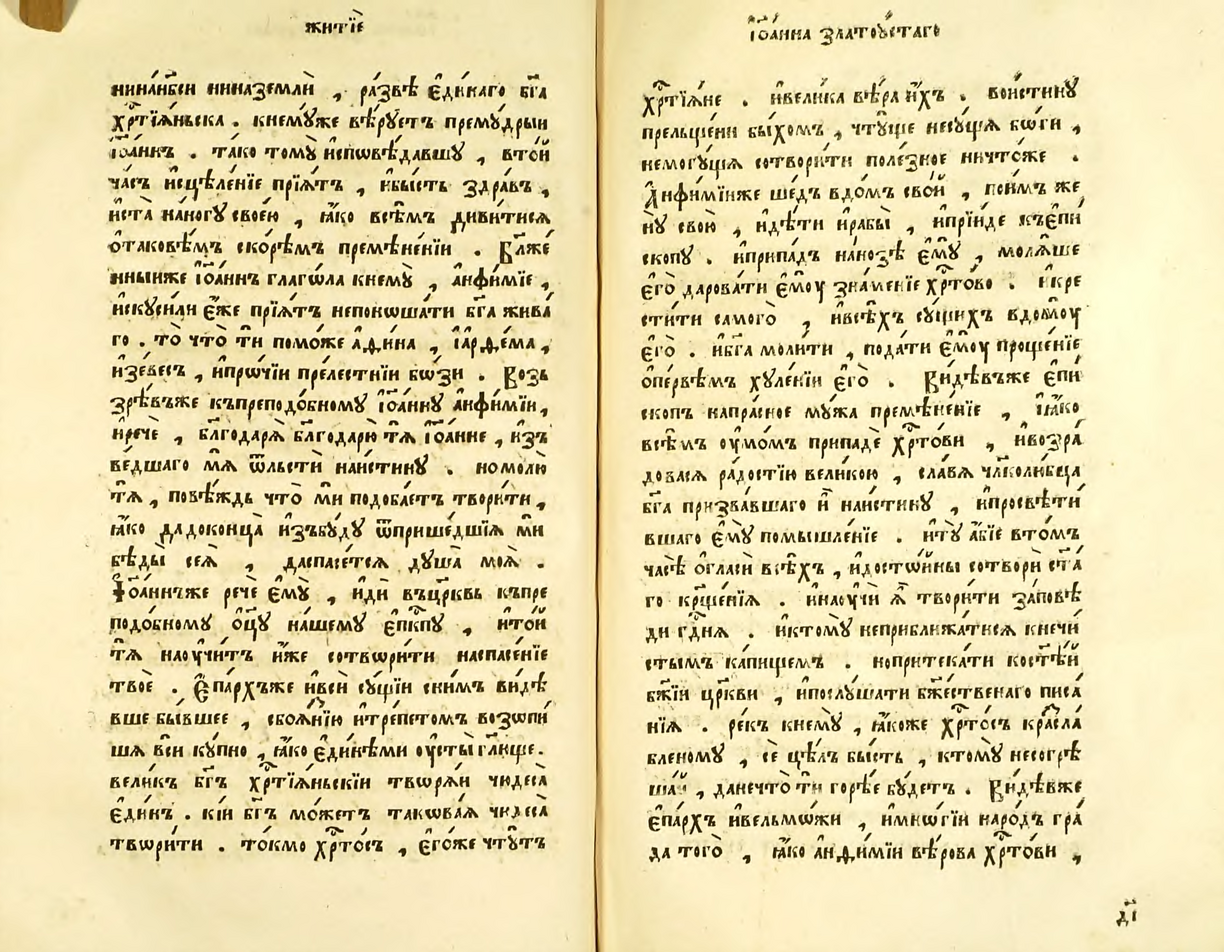 житїе
нинан҃бси ниназемлѝ , ра́звѣ є҆ди́наго бг҃а
хрⷭ҇тїѧ́ньска . кнемꙋ́же вѣ́рꙋетъ премꙋ́дрыи
і҆ѡа́ннъ . та́ко томꙋ̀ и҆сповѣ́давшꙋ , вто́й
ча́съ и҆сцѣле́нїе прїѧ́тъ , и҆бы́сть здра́въ ,
и҆ста̀ на́ногꙋ свое́ю , ꙗ҆́ко всѣ́мъ диви́тисѧ
ѡ҆тако́вѣмъ ско́рѣмъ премѣне́нїи . Бл҃же́
нныиже і҆ѡа́ннъ глаго́ла кнемꙋ̀ , а҆нфи́мїе ,
и҆скꙋси́ли є҆́же прїѧ́тъ непоноша́ти бг҃а жива́
го . то̀ что̀ ти помо́же а҆ди́на , і҆арде́ма ,
и҆зе́весъ , и҆про́чїи преле́стнїи бо́зи . Возъ
зрѣ́въже къпреподо́бномꙋ і҆ѡа́ннꙋ а҆нфи́мїи ,
и҆речѐ , бл҃годарѧ̀ бл҃годарю̀ тѧ̀ і҆ѡа́нне , и҆зъ
ве́дшаго мѧ̀ ѿльстѝ наи́стинꙋ . номолю̀
тѧ̀ , повѣ́ждь что̀ мѝ подоба́етъ твори́ти ,
ꙗ҆́ко дадоконца̀ и҆збꙋ́дꙋ ѿприше́дшїѧ мѝ
бѣды̀ сеѧ̀ , даспасе́тсѧ дꙋша̀ моѧ̀ .
І҆ѡа́ннъже речѐ є҆мꙋ̀ , и҆дѝ въцр҃квь къпре
подо́бномꙋ ѻ҆ц҃ꙋ на́шемꙋ є҆пⷭ҇кпꙋ , и҆то́й
тѧ̀ наоу҆чи́тъ и҆́же сотвори́ти наспасе́нїе
твоѐ . Є҆па́рхъже и҆всѝ сꙋ́щїи сни́мъ ви́дѣ
вше бы́вшее , сбоѧ́знїю и҆тре́петомъ возопи́
шѧ всѝ кꙋ́пно , ꙗ҆́ко є҆ди́нѣми оу҆сты̀ гл҃юще .
вели́къ бг҃ъ хрⷭ҇тїѧ́ньскїи творѧ́и чюдеса̀
є҆ди́нъ . кі́и бг҃ъ мо́жетъ такова́ѧ чюдеса̀
твори́ти . то́кмо хрⷭ҇то́съ , є҆го́же чтꙋ́тъ
і҆ѡа́нна златоꙋ́стаго
хрⷭ҇тїѧ́не . и҆вели́ка вѣ́ра и҆́хъ . вои́стинꙋ
прельще́ни бы́хомъ , чтꙋ́ще несꙋ́щѧѧ бо́ги ,
немогꙋ́щїѧ сотвори́ти поле́зное ничто́же .
А҆нфи́мїиже ше́дъ вдо́мъ сво́й , пои́мъ же
нꙋ̀ свою̀ , и҆дѣ́ти и҆рабы̀ , и҆прїи́де къє҆пи́
скопꙋ . и҆припа́дъ нано́зѣ є҆мꙋ̀ , молѧ́ше
є҆го̀ дарова́ти є҆моу̀ зна́менїе хрⷭ҇то́во . и҆кре
сти́ти самого̀ , и҆всѣ́хъ сꙋ́щихъ вдомоу̀
є҆го̀ . и҆бг҃а моли́ти , пода́ти є҆моу̀ проще́нїе
ѡ҆пе́рвѣмъ хꙋле́нїи є҆го̀ . Ви́дѣвъже є҆пи́
скопъ напра́сное мꙋ́жа премѣне́нїе , ꙗ҆́ко
всѣ́мъ оу҆мо́мъ припадѐ хрⷭ҇то́ви , и҆возра́
довасѧ ра́достїю вели́кою , сла́вѧ чл҃колю́бца
бг҃а призва́вшаго и҆̀ наи́стинꙋ , и҆просвѣти́
вшаго є҆мꙋ̀ помышле́нїе . и҆тꙋ̀ а҆́бїе вто́мъ
ча́сѣ ѡ҆гласѝ всѣ́хъ , и҆досто́йны сотворѝ ст҃а́
го кр҃ще́нїѧ . и҆наоу҆чѝ ѧ҆̀ твори́ти за́повѣ
ди гдⷭ҇нѧ . и҆ктомꙋ̀ неприближа́тисѧ кнечи́
стымъ ка́пищемъ . нопритека́ти косте́й
бж҃їи цр҃кви , и҆послꙋ́шати бж҃е́ственаго писа́
нїѧ . ре́къ кнемꙋ̀ , ꙗ҆́коже хрⷭ҇то́съ кра́сла
бленомꙋ , сѐ цѣ́лъ бы́сть , ктомꙋ̀ несогрѣ
ша́й , данечто̀ ти го́рѣе бꙋ́детъ . Ви́дѣвже
є҆па́рхъ и҆вельмо́жи , и҆мно́гїи наро́дъ гра́
да того̀ , ꙗ҆́ко а҆нди́мїи вѣ́рова хрⷭ҇то́ви ,
д҃і